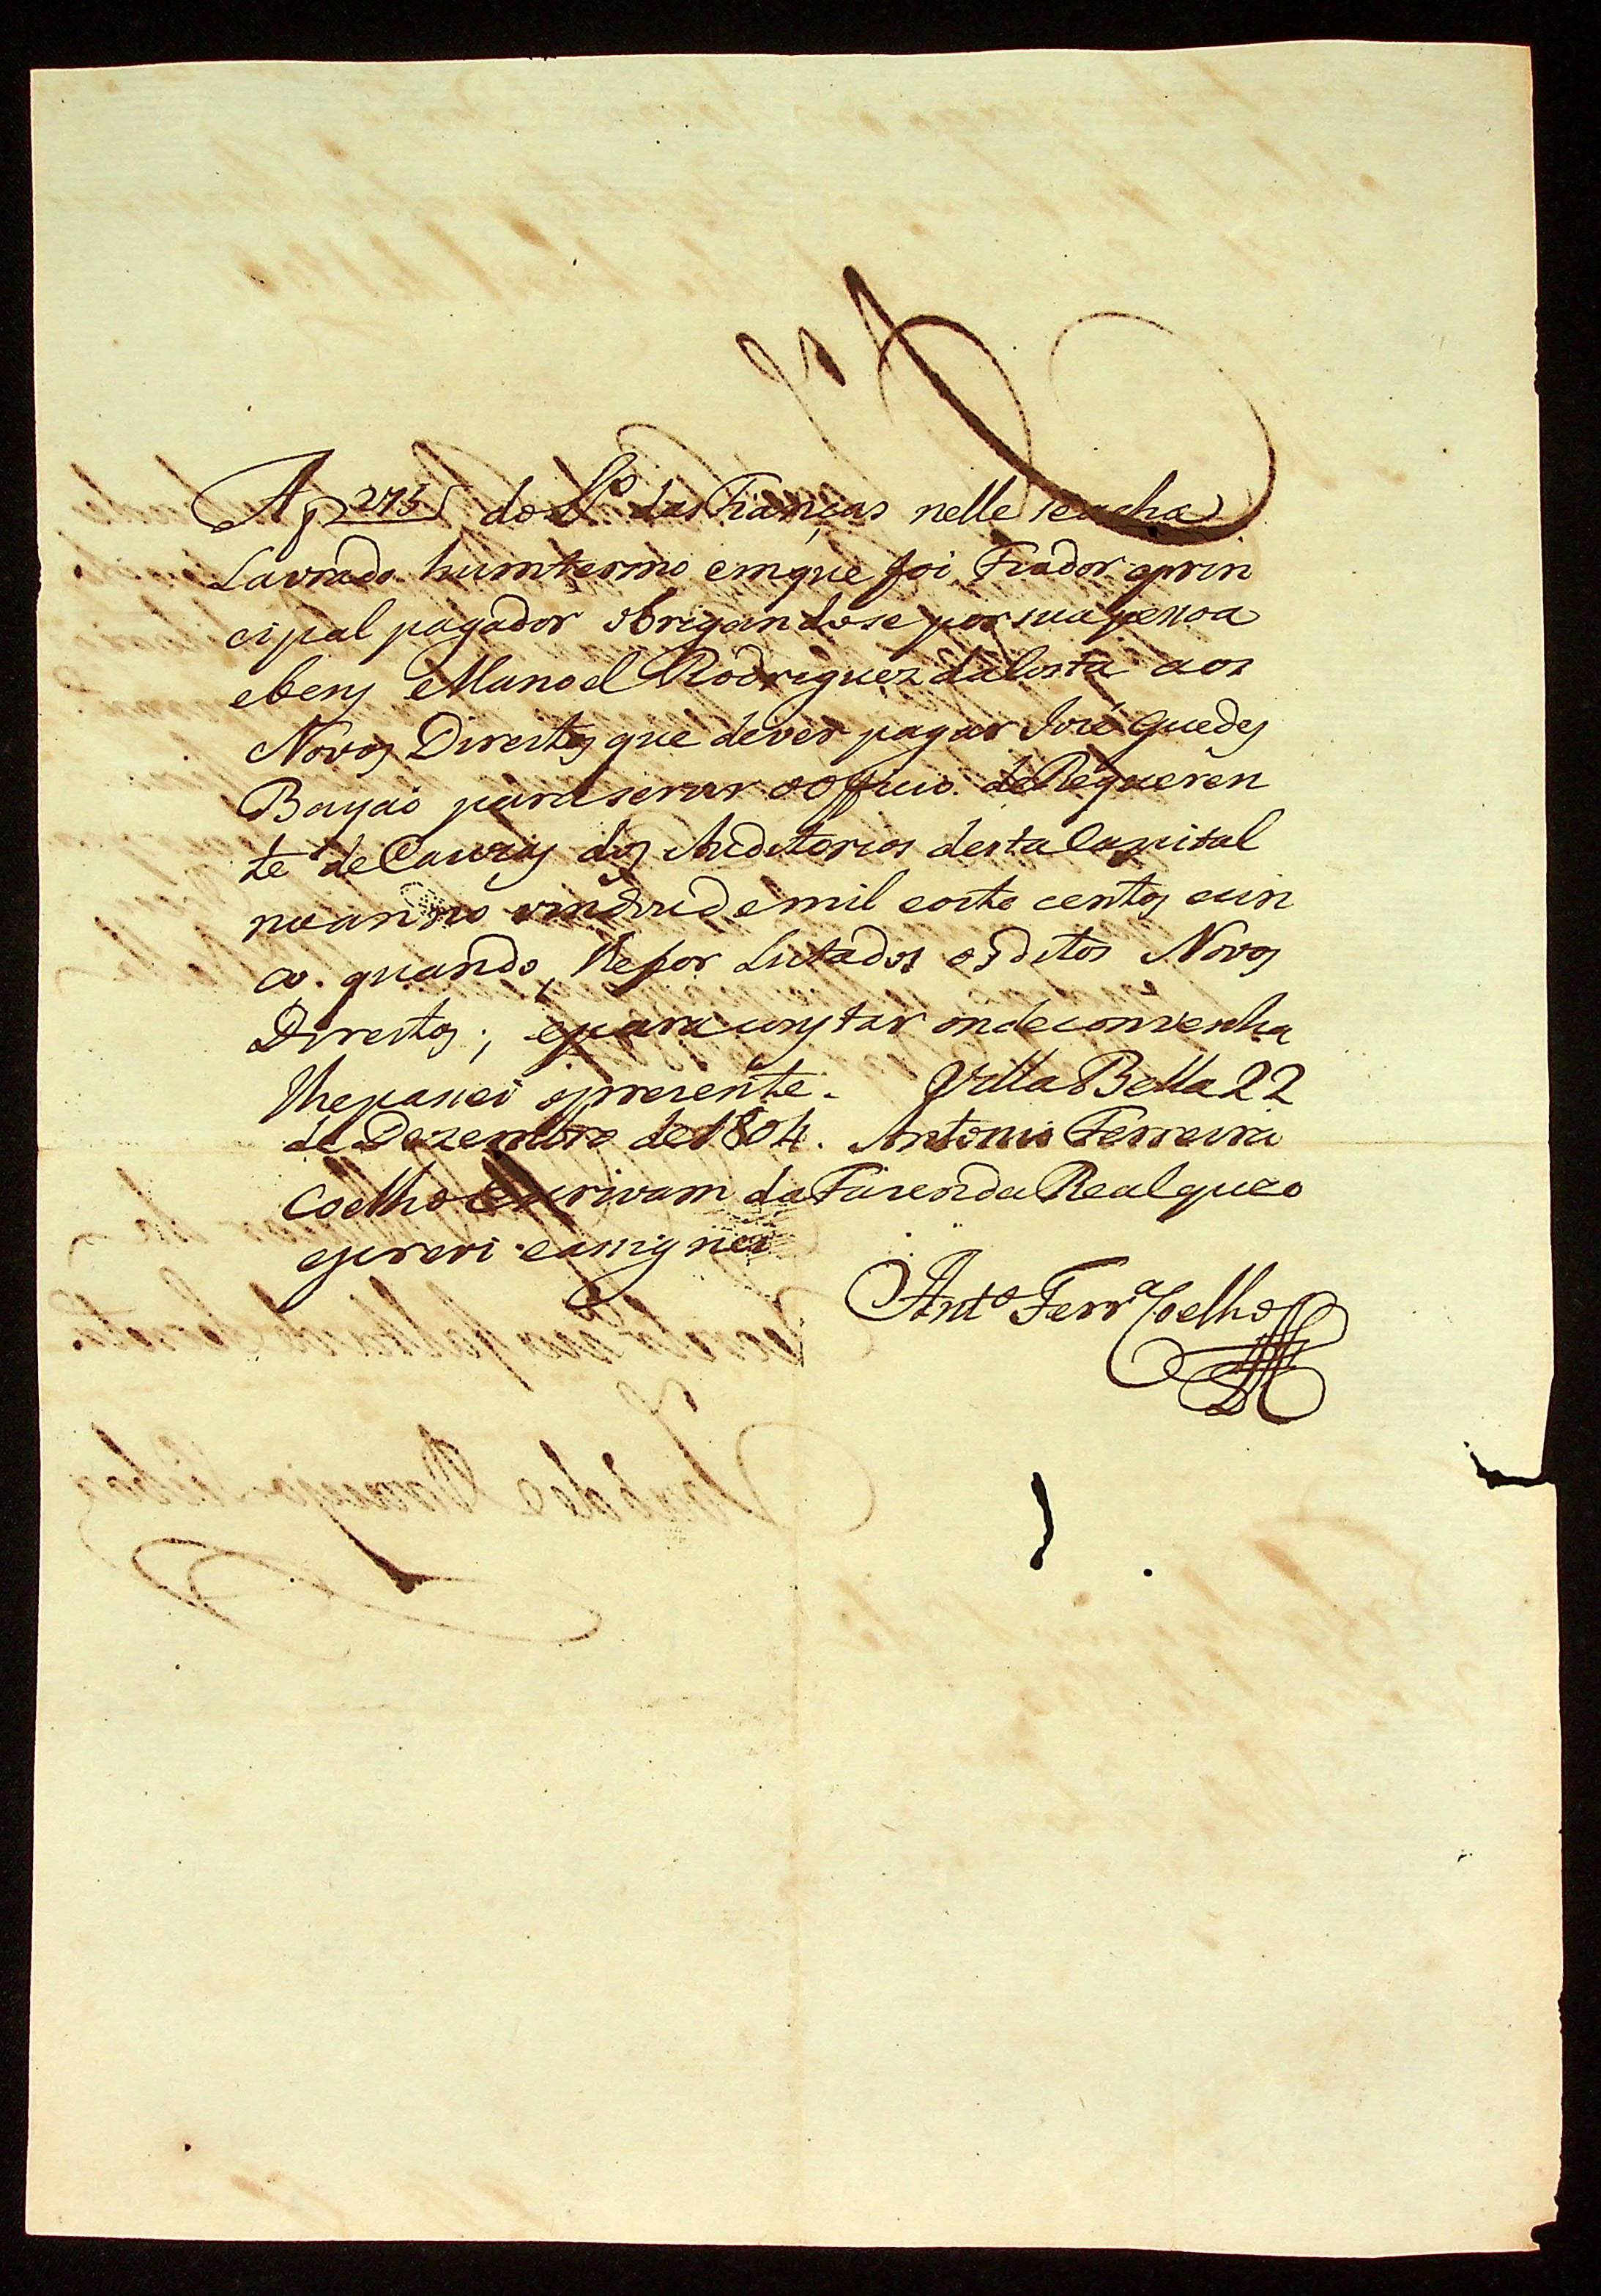 A f 275 do L.º das Fianças nelle seacha
Lavrado humtermo emque foi Fiador eprin
cipal pagador obrigandose por sua pessoa
ebens Manoel Rodriguez da Costa aos
Novos Direitos que dever pagar Jozé Guedes
Bayaõ para servir o officio de Requeren
te de Cauzas dos Auditorios desta Capital
no anno vindouro de mil eoito centos ecin
co. quando lhe for Lutados os ditos Novos
Direitos; epara constar ondeconvenha
lhepassei opresente. Villa Bella 22
de Dezembro de 1804. Antonio Ferreira
Coelho Escrivam da Fazenda Real que o
escrevi easigney
Ant.º Ferr.ª Coelho